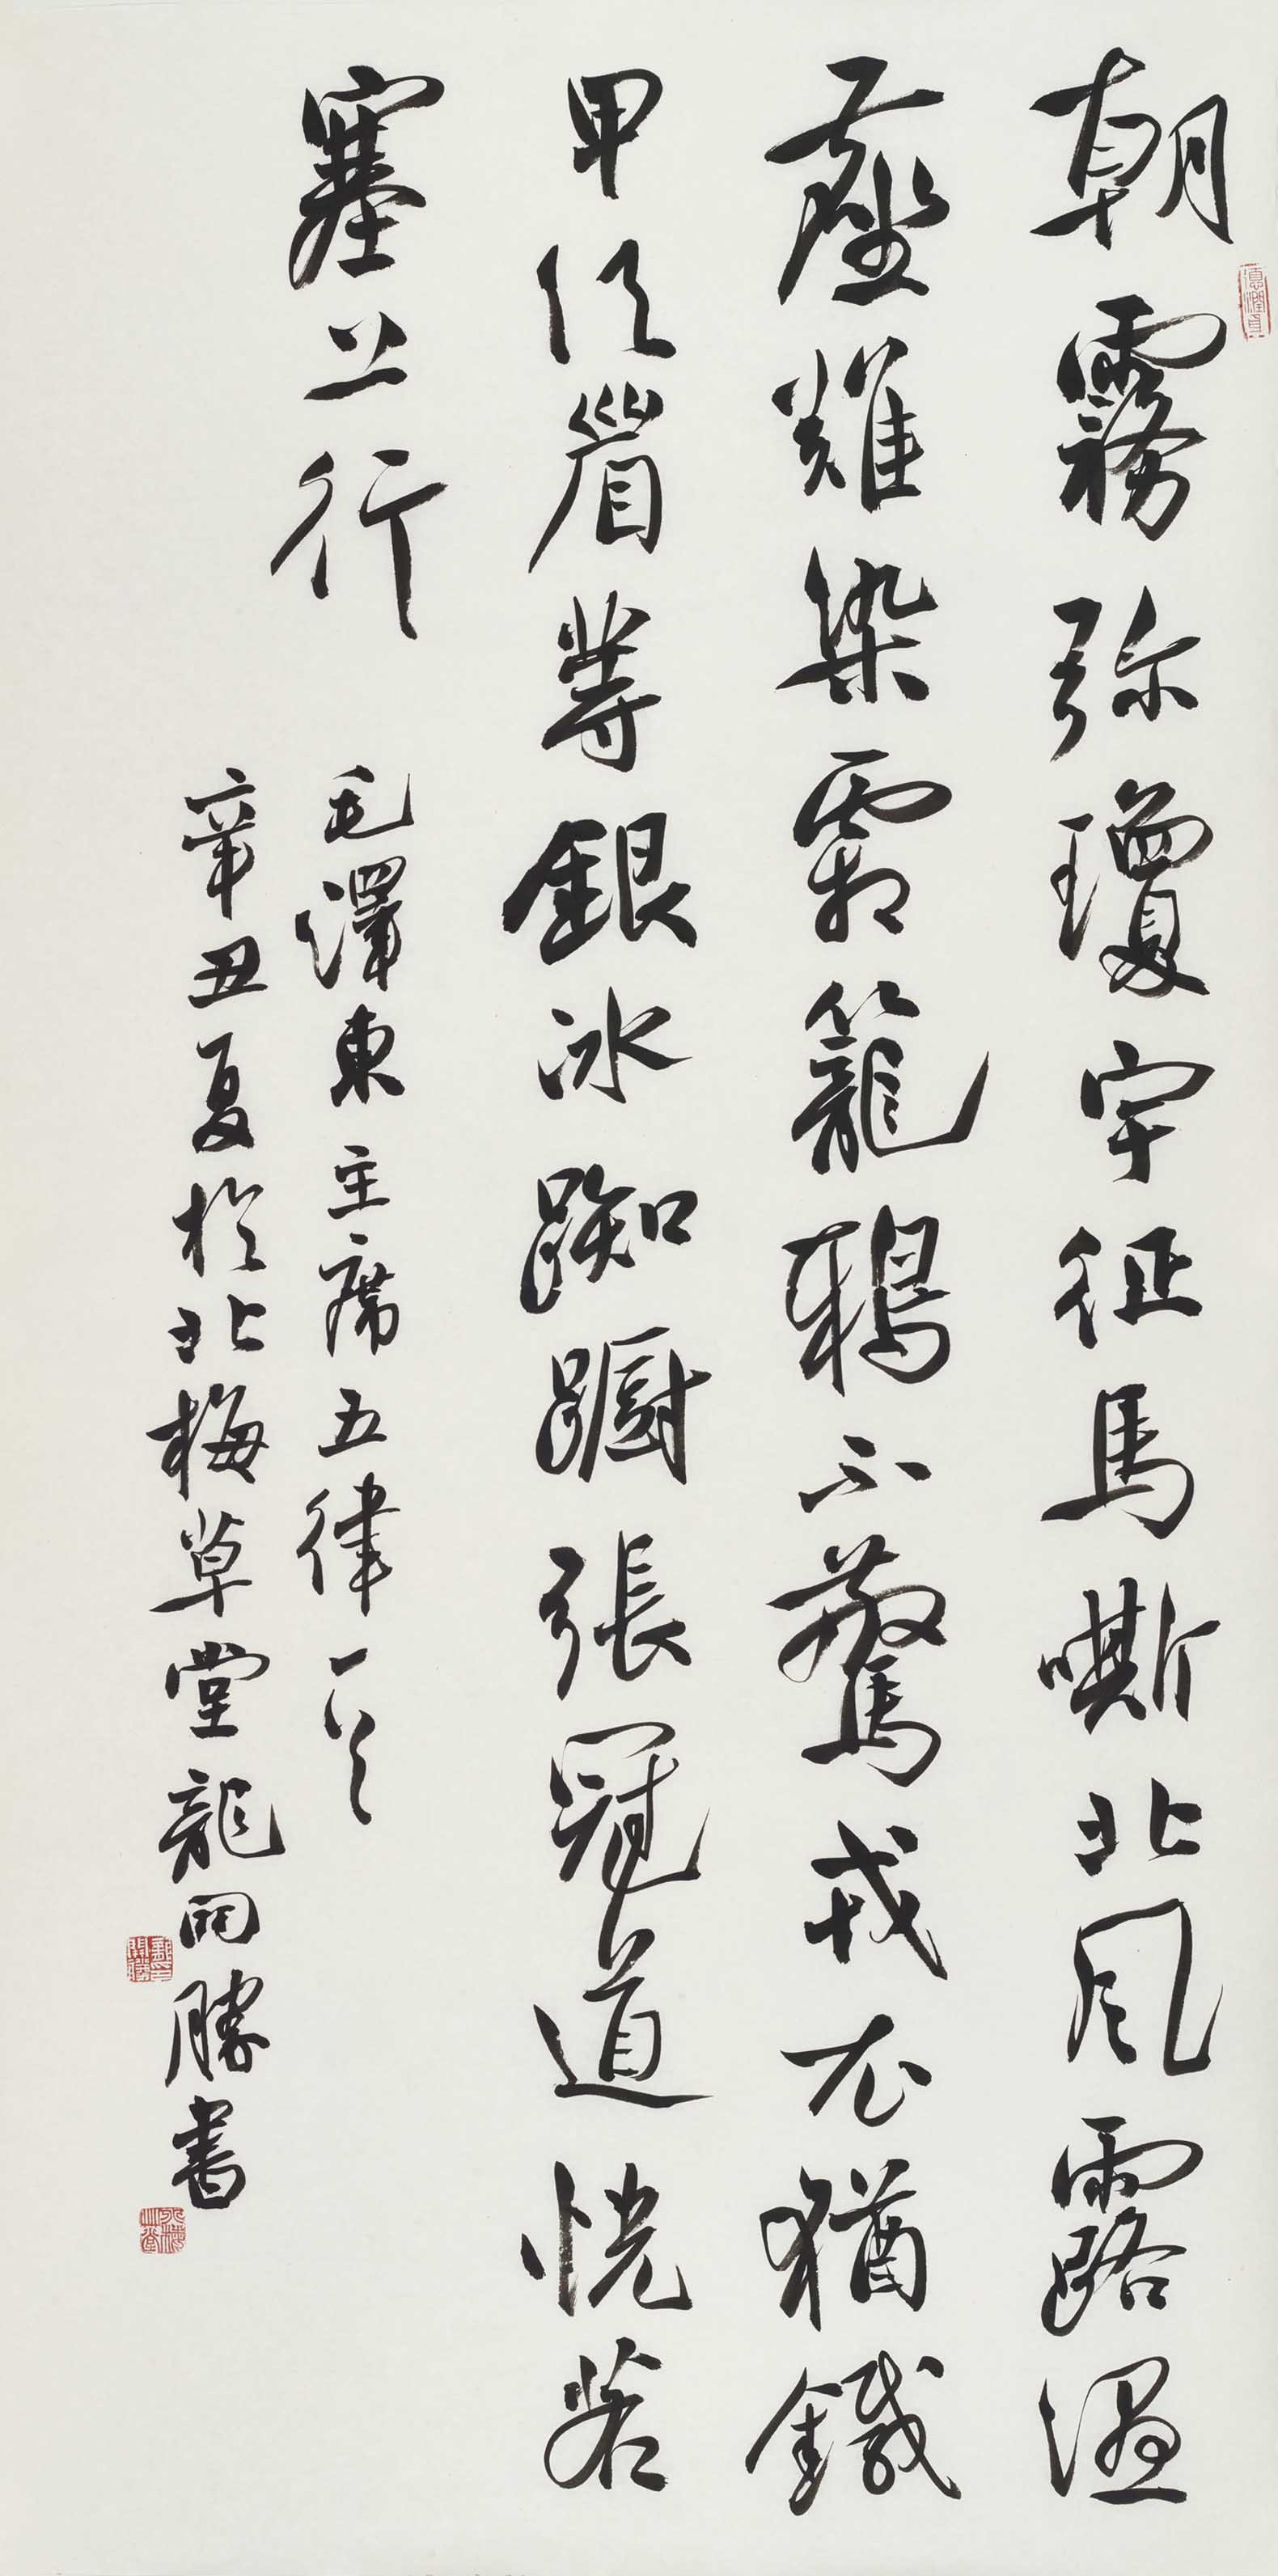 朝霧弥瓊宇征馬嘶北風露濕
塵難染霜籠鴉不驚戎衣猶鐵
甲須眉等銀冰踟躕張冠道恍若
塞上行
毛澤東主席五律一首
辛丑夏於北梅草堂龍開勝書